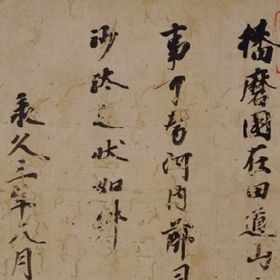 播磨國在田道山
事可河内
沙汰之状如件
承久三年八月